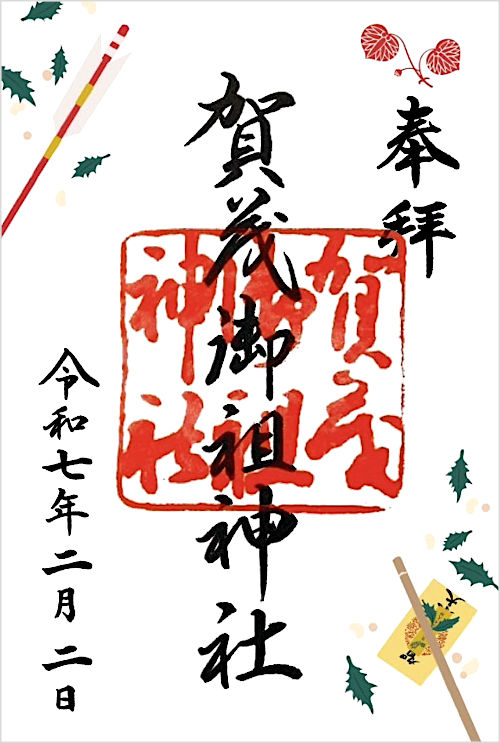 奉拝
賀茂御祖神社
賀茂
御祖
神社
令和七年二月二日